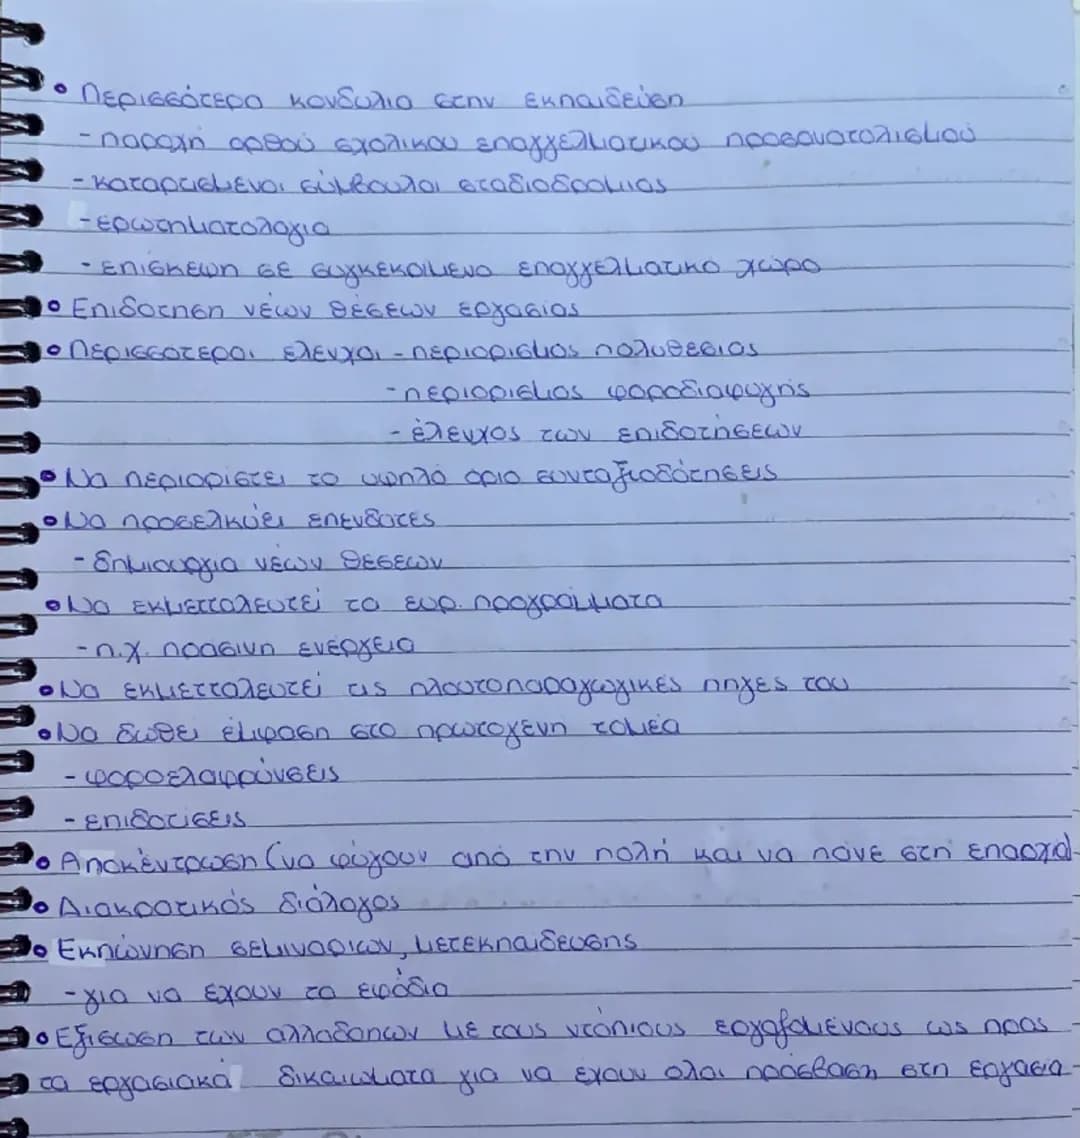 • Περισσότερα κονδύλια στην εκπαίδευση
- παροχή ορθού σχολικού επαγγελματικού προσανατολισμού
- καταρτισμένοι σύμβουλοι σταδιοδρομίας
- ερωτηματολόγια
- επίσκεψη σε συγκεκριμένο επαγγελματικό χώρο
• Επιδότηση νέων θέσεων εργασίας
• Περισσότεροι έλεγχοι - περιορισμός πολυθεσίας
- περιορισμός φοροδιαφυγής
- έλεγχος των επιδοτήσεων
• Να περιοριστεί το υψηλό όριο συνταξιοδότησεις
• Να προσελκύει επενδυτές
- δημιουργία νέων θέσεων
• Να εκμεταλλευτεί τα ευρ. προγράμματα
- π.χ. πράσινη ενέργεια
• Να εκμεταλλευτεί τις πλουτοπαραγωγικές πηγές του
• Να δωθεί έμφαση στο πρωτογενή τομέα
- φοροελαφρύνσεις
- επιδοτισεις
• Αποκέντρωση (να φύγουν από την πόλη και να πάνε στη επαρχία)
• Διακρατικός διάλογος
• Εκπόνηση σεμιναρίων, μετεκπαίδευσης
- για να έχουν τα εφόδια
• Εξίσωση των αλλοδαπών με τους ντόπιους εργαζομένους ως προς
τα εργασιακά δικαιώματα για να έχουν όλοι πρόσβαση στη εργασία